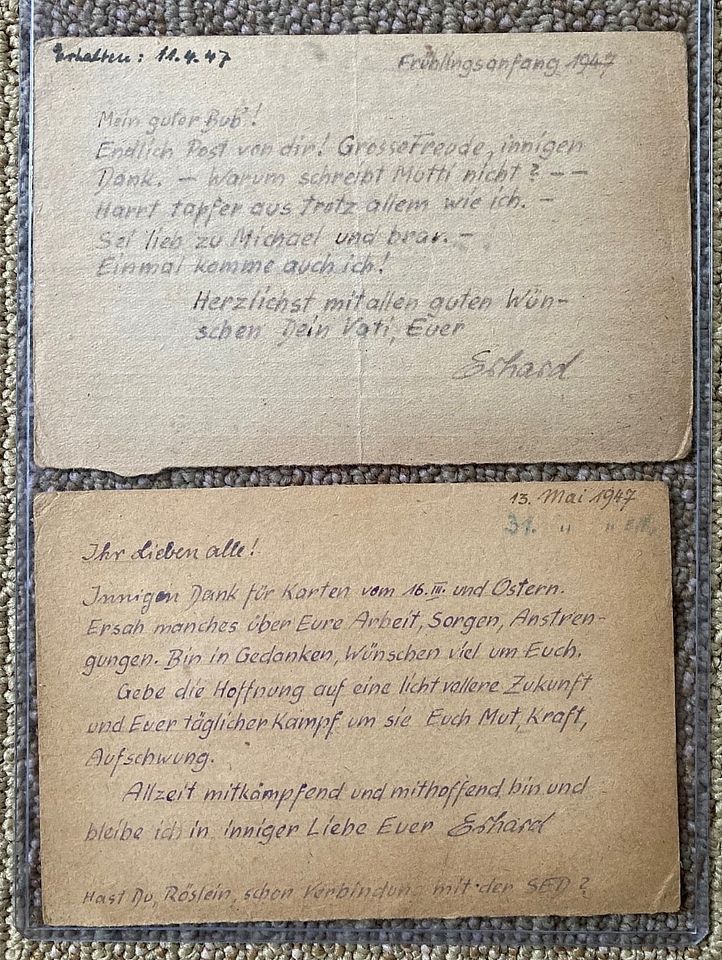 Erhalten: 11.4.47
Frühlingsanfang 1947
Mein guter Bub!
Endlich Post von dir! Grosse Freude, innigen
Dank. — Warum schreibt Mutti nicht? — —
Harrt tapfer aus trotz allem wie ich. —
Sei lieb zu Michael und brav. —
Einmal komme auch ich!
Herzlichst mit allen guten Wün-
schen Dein Vati, Euer
Erhard
13. Mai 1947
31. " "
Ihr Lieben alle!
Innigen Dank für Karten vom 16. III. und Ostern.
Ersah manches über Eure Arbeit, Sorgen, Anstren-
gungen. Bin in Gedanken, Wünschen viel um Euch.
Gebe die Hoffnung auf eine lichtvollere Zukunft
und Euer täglicher Kampf um sie Euch Mut, Kraft,
Aufschwung.
Allzeit mitkämpfend und mithoffend bin und
bleibe ich in inniger Liebe Euer Erhard
Hast Du, Röslein, schon Verbindung mit der SED?